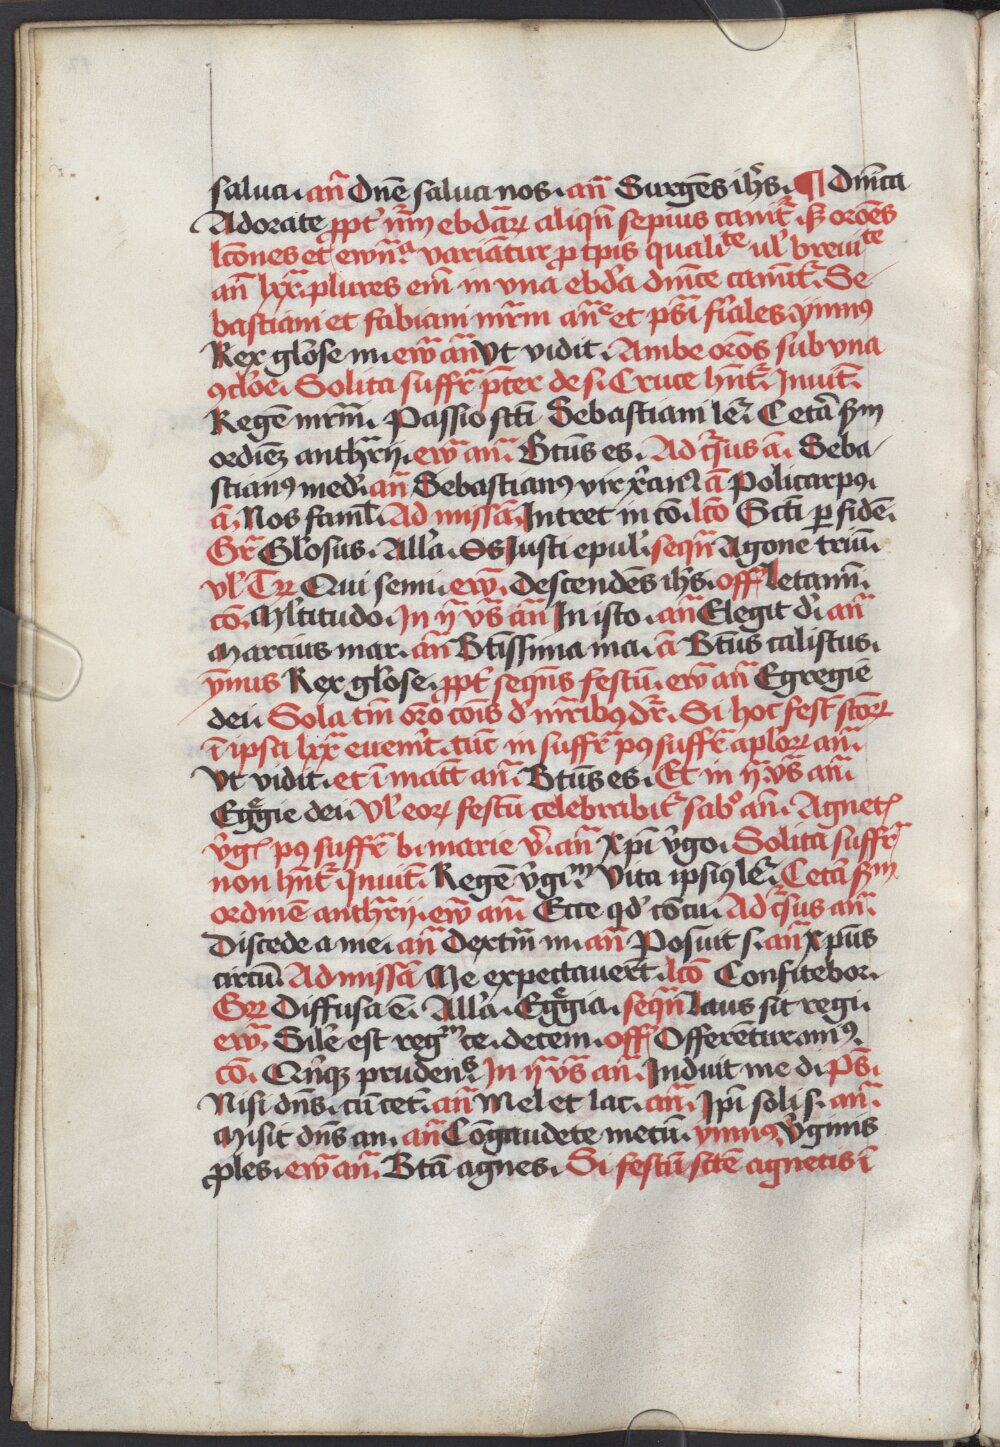 salua. an̄ Dn̄e salua nos. an̄ Surgēs ih̄s. ¶ Dn̄ica
Adorate ꝓpt' nr̄m ebdāꝝ aliqn̄ sepius canit᷑. ⁊ or̄oēs
lc̄ones et ew̄ᵃ variātur ꝓ tp̄is qualiᵗᵉ ul' breuiᵗᵉ
an̄ lxx̄. plures em̄ in vna ebd'a dn̄ice canūt᷑. Se
bastiani et fabiani mr̄m an̄ᵉ et ps̄i f'iales. ymnꝰ
Rex glōse m. ew̄ an̄ Vt vidit. Ambe or̄oēs sub vna
ꝯcl'oe. Solita suffr̄ p̄ter de s. Cruce hn̄t᷑. Inuit̄.
Regē mr̄m. Passio sc̄ti Sebastiani le᷑. Cetā ẜm
ordiēꝫ anth̄rij. ew̄ an̄. Bt̄us es. Ad c᷑sus ā. Seba
stianꝰ med'. an̄ Sebastianꝰ vir x̄anꝰ. ā Policarpꝰ.
ā. Nos faml'. Ad missā. Intret in cō. lc̄o Sc̄ti ꝑ fidē.
Gr̄ Gl'osus. All'a. Iusti epul'. seqn̄ Agone triū.
vl' Tꝝ Qui semi. ew̄. Descendēs ih̄s. off̄ Letamī.
cō. Ml'titudo. In ij vs̄ an̄ In isto. an̄ Elegit d'. an̄
Marcius mar. an̄ Bt̄issima ma. ā Bt̄us calistus.
ym̄nus Rex gl'ose. ꝓpt' seqn̄s festū. ew̄ an̄ Egregie
dei. Sola tm̄ or̄o cōis d' mr̄ibꝰ dr̄. Si hoc fest̄ sc̄oꝝ
ī ipsa lxx̄ euenīt. tūc in suffr̄ pꝰ suffr̄ apl'oꝝ an̄.
Vt vidit. et ī matt̄ an̄. Bt̄us es. Et in ij vs̄ an̄.
Eg̊gie dei Vl' eoꝝ festū celebrabit᷑ sabō an̄. Agnetꝭ
v̄gꝭ pꝰ suffr̄ b. marie v̄. an̄ Xp̄i v̄go. Solita suffr̄
non hn̄t᷑. Inuit̄. Regē v̄giᵐ Vita ipsiꝰ le᷑. Cetā ẜm
ordinē anth̄rij. ew̄ an̄. Ecce qd' cōcu. Ad c᷑sus an̄.
Discede a me. an̄ Dextrā m. an̄ Posuit s. an̄ xp̄us
circū. Ad missā Me expectauert̄. lc̄o Confitebor.
Gꝝ Diffusa ē. All'a. Eg̊gia. seqn̄ Laus sit regi.
ew̄. Sil'e est regᵐ ce. decem. off̄ Offerētur. miꝰ.
cō. Qn̄qꝫ prudenˢ. In ij vs̄ an̄. Induit me d. Ps̄.
Nisi dn̄s. cū cet̄. an̄ Mel et lac. an̄. Ip̄i soli s. an̄.
Misit dn̄s an. an̄ Cōgaudete mecū. ymnꝰ. v̄ginis
ꝓles. ew̄ an̄. Bt̄a agnes. Si festū sc̄te agnetis ī